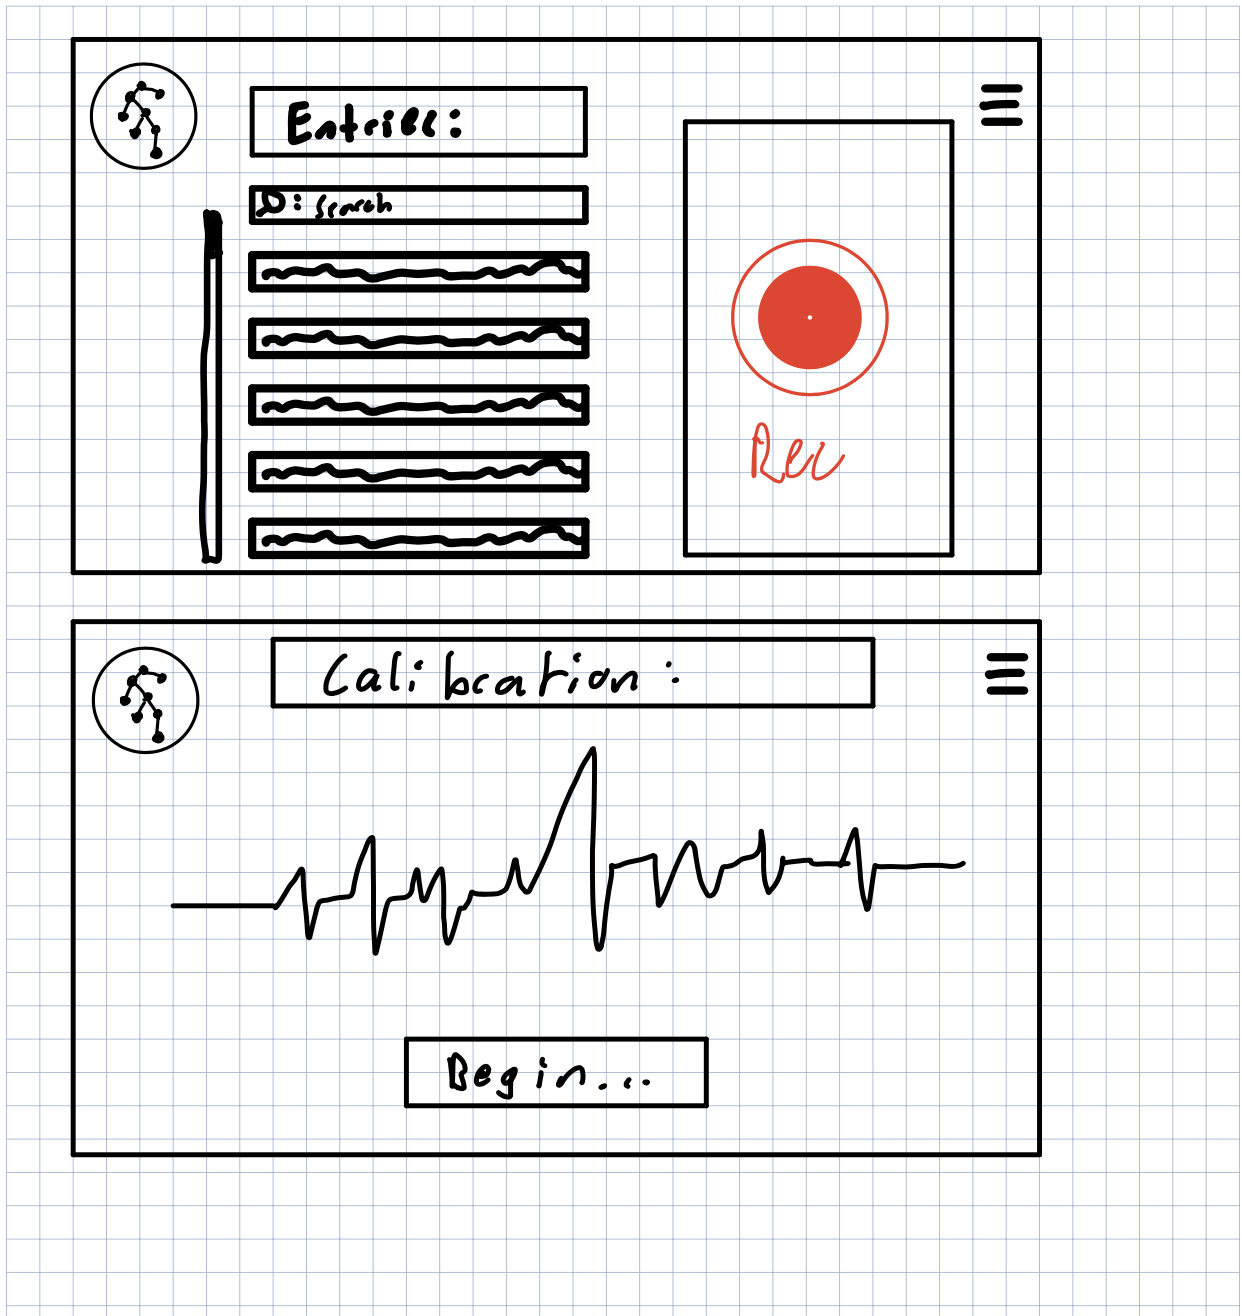 Entries:
: Search
Rec
Calibration:
Begin...